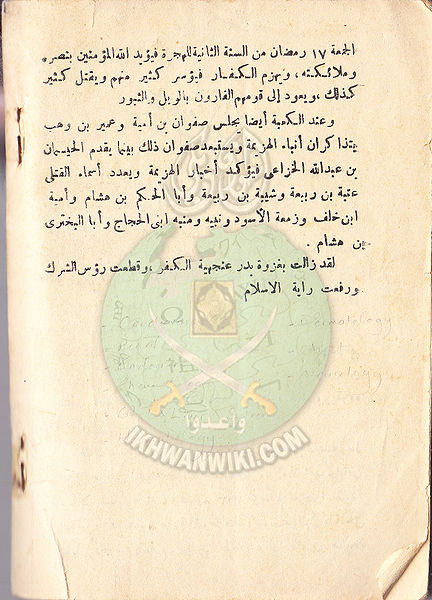 الجمعة ١٧ رمضان من السنة الثانية للهجرة فيؤيد الله المؤمنين بنصره
وملائكته ، ويهزم الكفار فيؤسر كثير منهم ويقتل كثير
كذلك ، ويعود إلى قومهم الفارون بالويل والثبور
وعند الكعبة أيضا يجلس صفوان بن أمية وعمير بن وهب
يتذاكران أنباء الهزيمة ويستبعد صفوان ذلك بينما يقدم الحيسمان
بن عبدالله الخزاعى فيؤكد أخبار الهزيمة ويعدد أسماء القتلى
عتبة بن ربيعة وشيبة بن ربيعة وأبا الحكم بن هشام وأمية
ابن خلف وزمعة الأسود ونبيه ومنبه ابنى الحجاج وأبا البخترى
بن هشام .
لقد زالت بغزوة بدر عنجهية الكفر ، وقطعت رؤس الشرك
ورفعت راية الاسلام
Dermatology
وأعدوا
IKHWANWIKI.COM